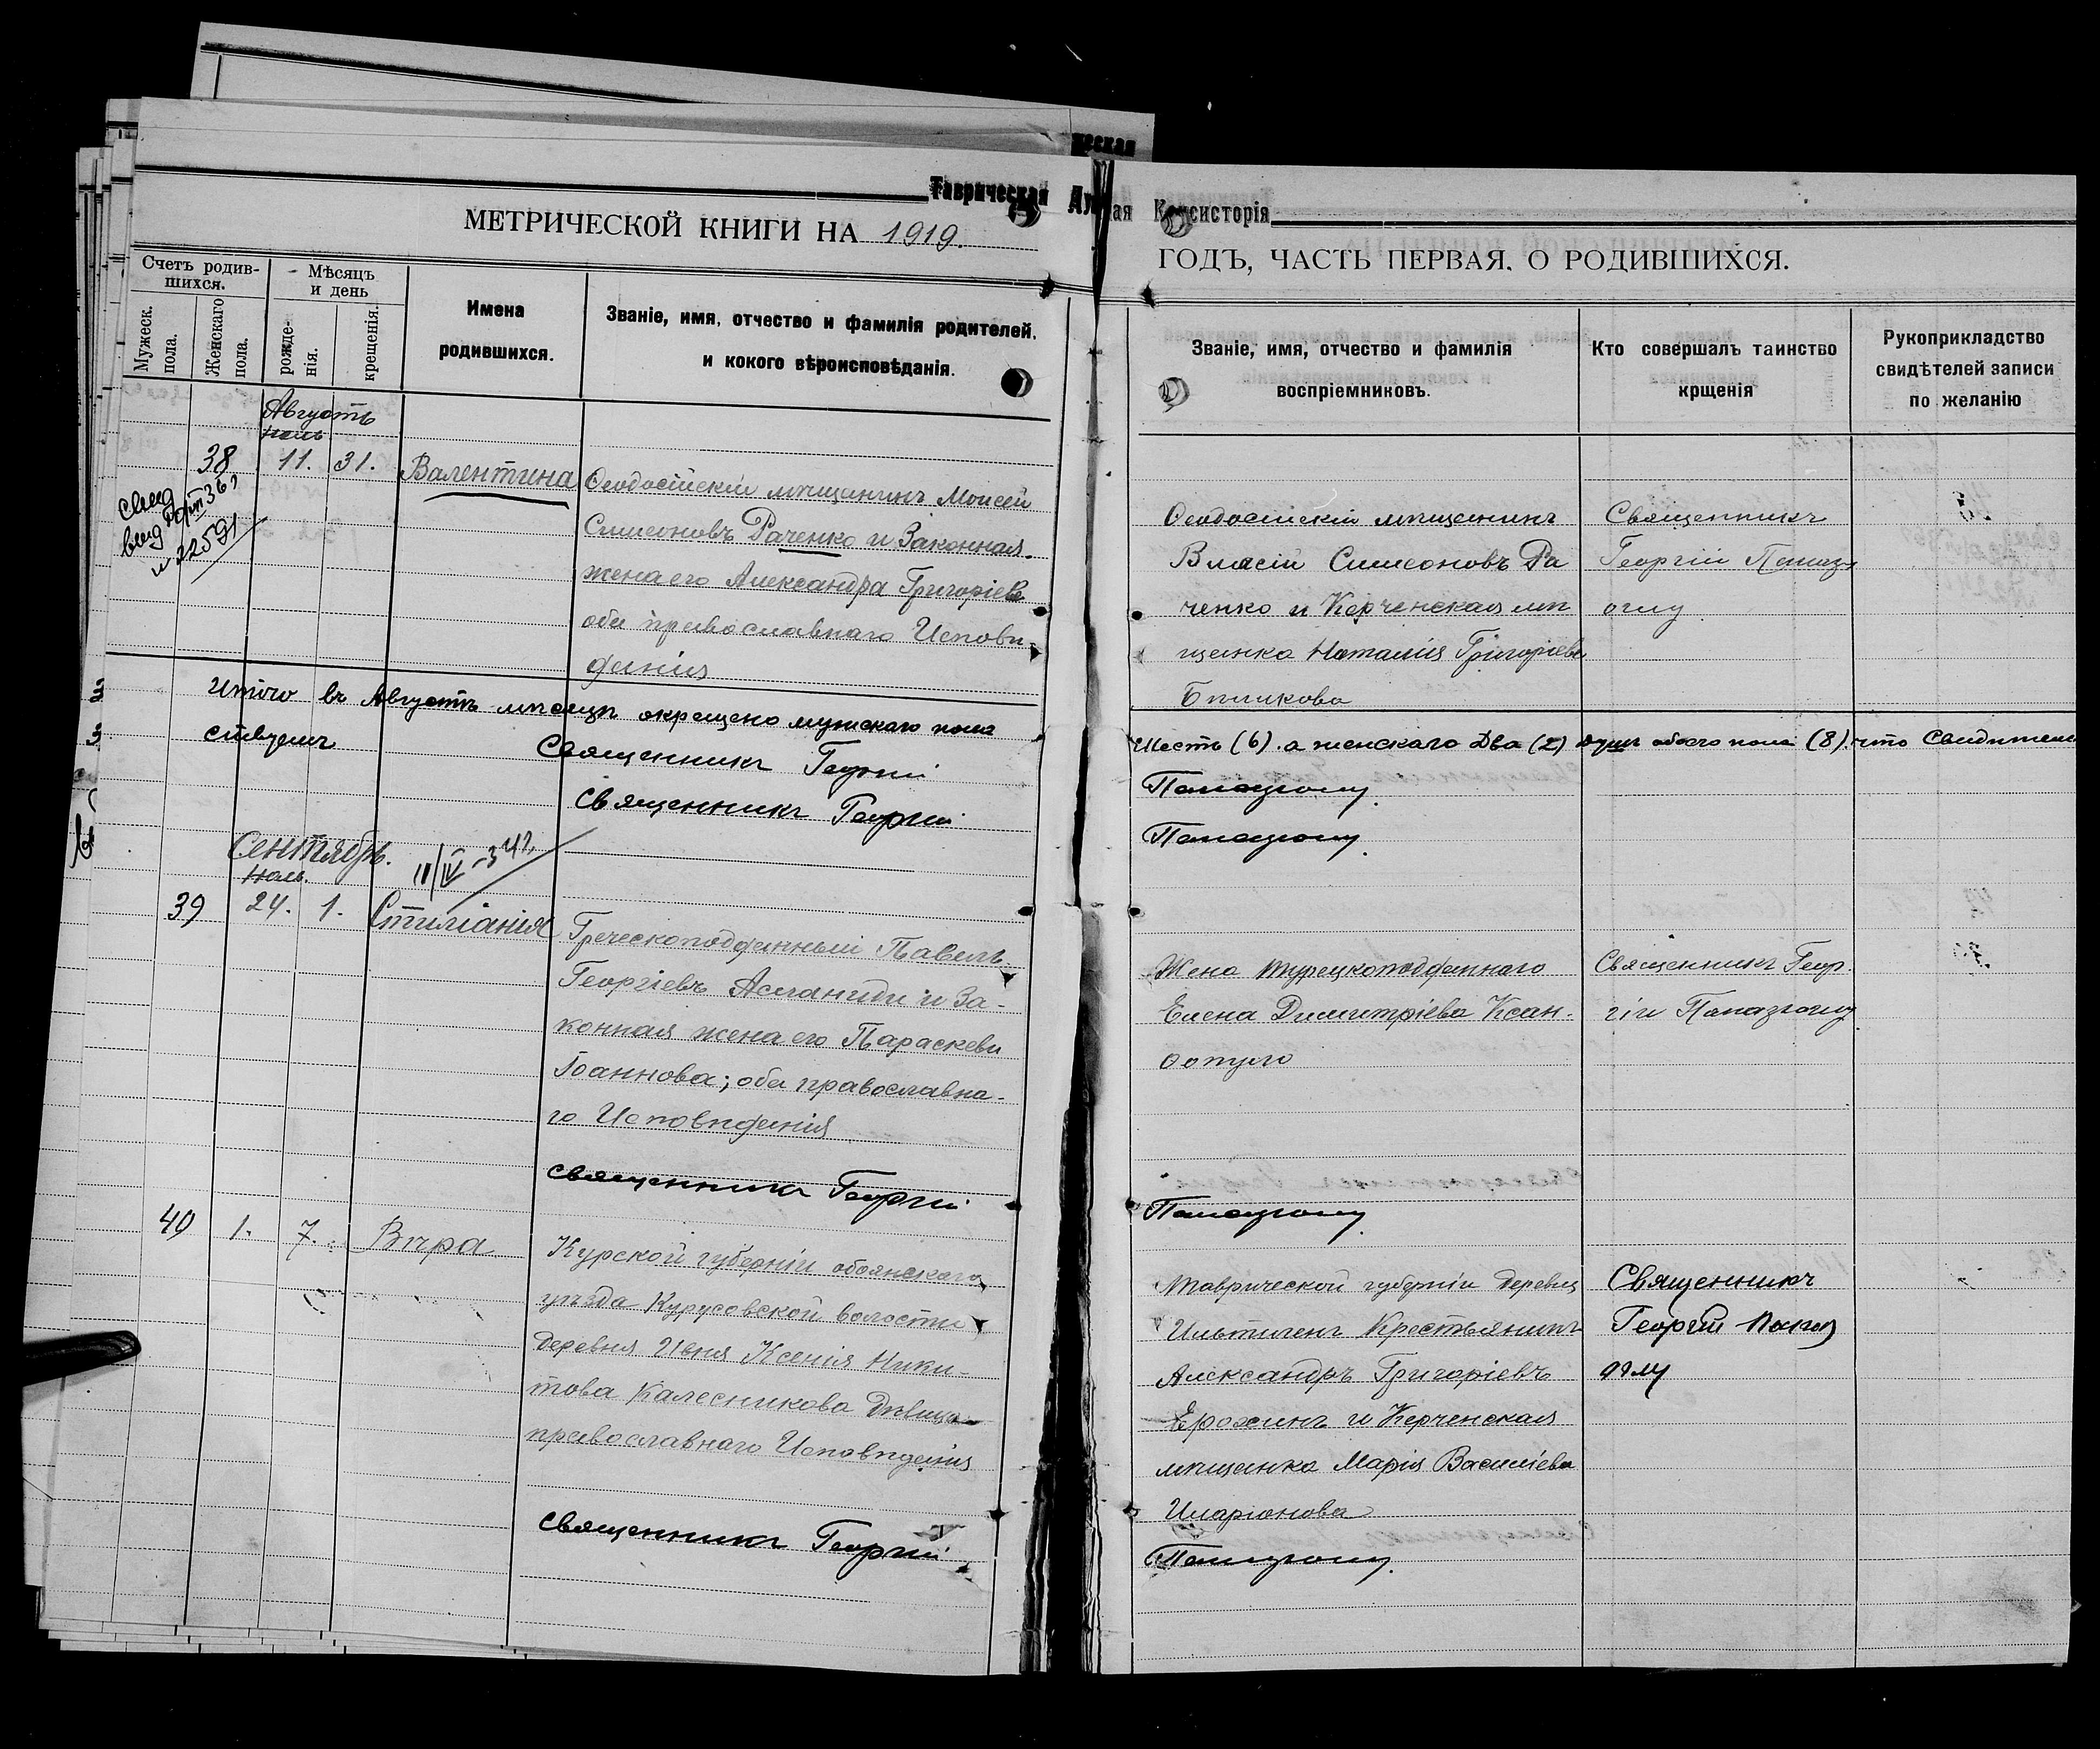 Таврическая Ду
ая Консисторія
МЕТРИЧЕСКОЙ КНИГИ НА 1919.
ГОДЪ, ЧАСТЬ ПЕРВАЯ. О РОДИВШИХСЯ.
Счетъ родив-
шихся.
Мужеск.
пола.
Женскаго
пола.
Мѣсяцъ
и день
рожде-
нія.
крещенія.
Имена
родившихся.
Званіе, имя, отчество и фамилія родителей,
и кокого вѣроисповѣданія.
Званіе, имя, отчество и фамилія
воспріемниковъ.
Кто совершалъ таинство
крщенія
Рукоприкладство
свидѣтелей записи
по желанію
Августъ
38 11. 31. Валентина
22591
Ѳеодосійскій мѣщанинъ Моисей
Симеоновъ Раченко и Законная
жена его Александра Григоріева
оба православнаго Исповѣ
данія
Ѳеодосійскій мѣщанинъ
Власій Симеоновъ Ра
ченко и Керченская мѣ
щанка Наталія Григоріева
Бѣликова
Священникъ
Георгій Папаз
оглу
Итого въ Августѣ мѣсяцѣ окрещено мужскаго пола
Шесть (6). а женскаго Два (2) душъ обоего пола (8). что Свидѣтель
ствуемъ
Священникъ Георгій
Папазоглу.
Священникъ Георгій
Папазоглу.
Сентябрь.
11/IV-34г.
39 24. 1. Стиліанія
Греческоподданный Павелъ
Георгіевъ Асланиди и За-
конная жена его Параскева
Іоаннова; оба православна-
го Исповѣданія
Жена турецкоподданнаго
Елена Димитріева Ксан-
Священникъ Геор
гій Папазоглу
священникъ Георгій
Папазоглу.
40 1. 7. Вѣра
Курской губерніи обоянскаго
уѣзда Курусовской волости
деревня Ивня Ксенія Ники-
това Калесникова Дѣвица
православнаго Исповѣданія
Таврической губерніи деревни
Крестьянинъ
Александръ Григоріевъ
Ерохинъ и Керченская
мѣщанка Марія Василіева
Иларіонова
Священникъ
Георгій Папаз
оглу
священникъ Георгій
Папазоглу.